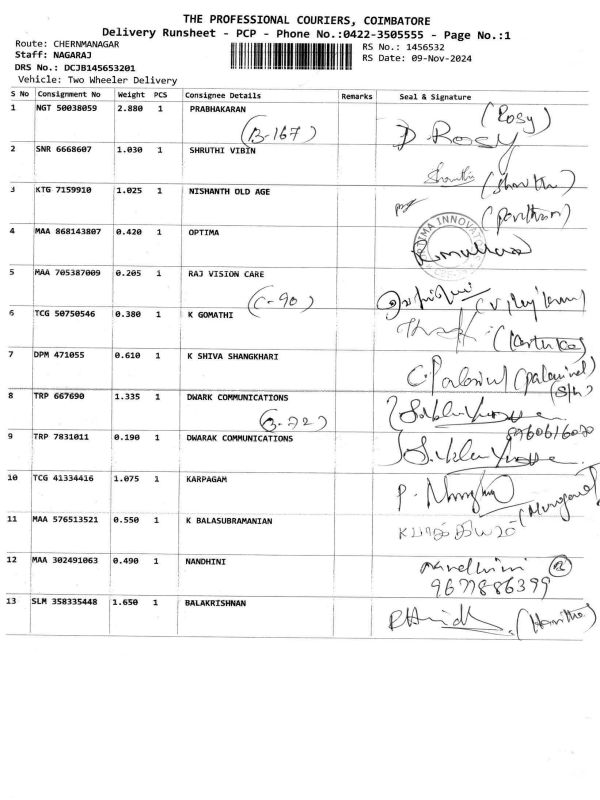 THE PROFESSIONAL COURIERS, COIMBATORE
Delivery Runsheet - PCP - Phone No.:0422-3505555 - Page No.:1
Route: CHERNMANAGAR
RS No.: 1456532
Staff: NAGARAJ
RS Date: 09-Nov-2024
DRS No.: DCJB145653201
Vehicle: Two Wheeler Delivery
S No Consignment No Weight PCS Consignee Details Remarks Seal & Signature
1 NGT 50038059 2.880 1 PRABHAKARAN (Rosy)
(B-167) D. Rosy
2 SNR 6668607 1.030 1 SHRUTHI VIBIN
3 KTG 7159910 1.025 1 NISHANTH OLD AGE
4 MAA 868143807 0.420 1 OPTIMA
5 MAA 705387009 0.205 1 RAJ VISION CARE
(C-90)
6 TCG 50750546 0.380 1 K GOMATHI
7 DPM 471055 0.610 1 K SHIVA SHANGKHARI
(S/h)
8 TRP 667690 1.335 1 DWARK COMMUNICATIONS
9 TRP 7831011 0.190 1 DWARAK COMMUNICATIONS
10 TCG 41334416 1.075 1 KARPAGAM
11 MAA 576513521 0.550 1 K BALASUBRAMANIAN
12 MAA 302491063 0.490 1 NANDHINI Nandhini
9677886399
13 SLM 358335448 1.650 1 BALAKRISHNAN (Haritha)